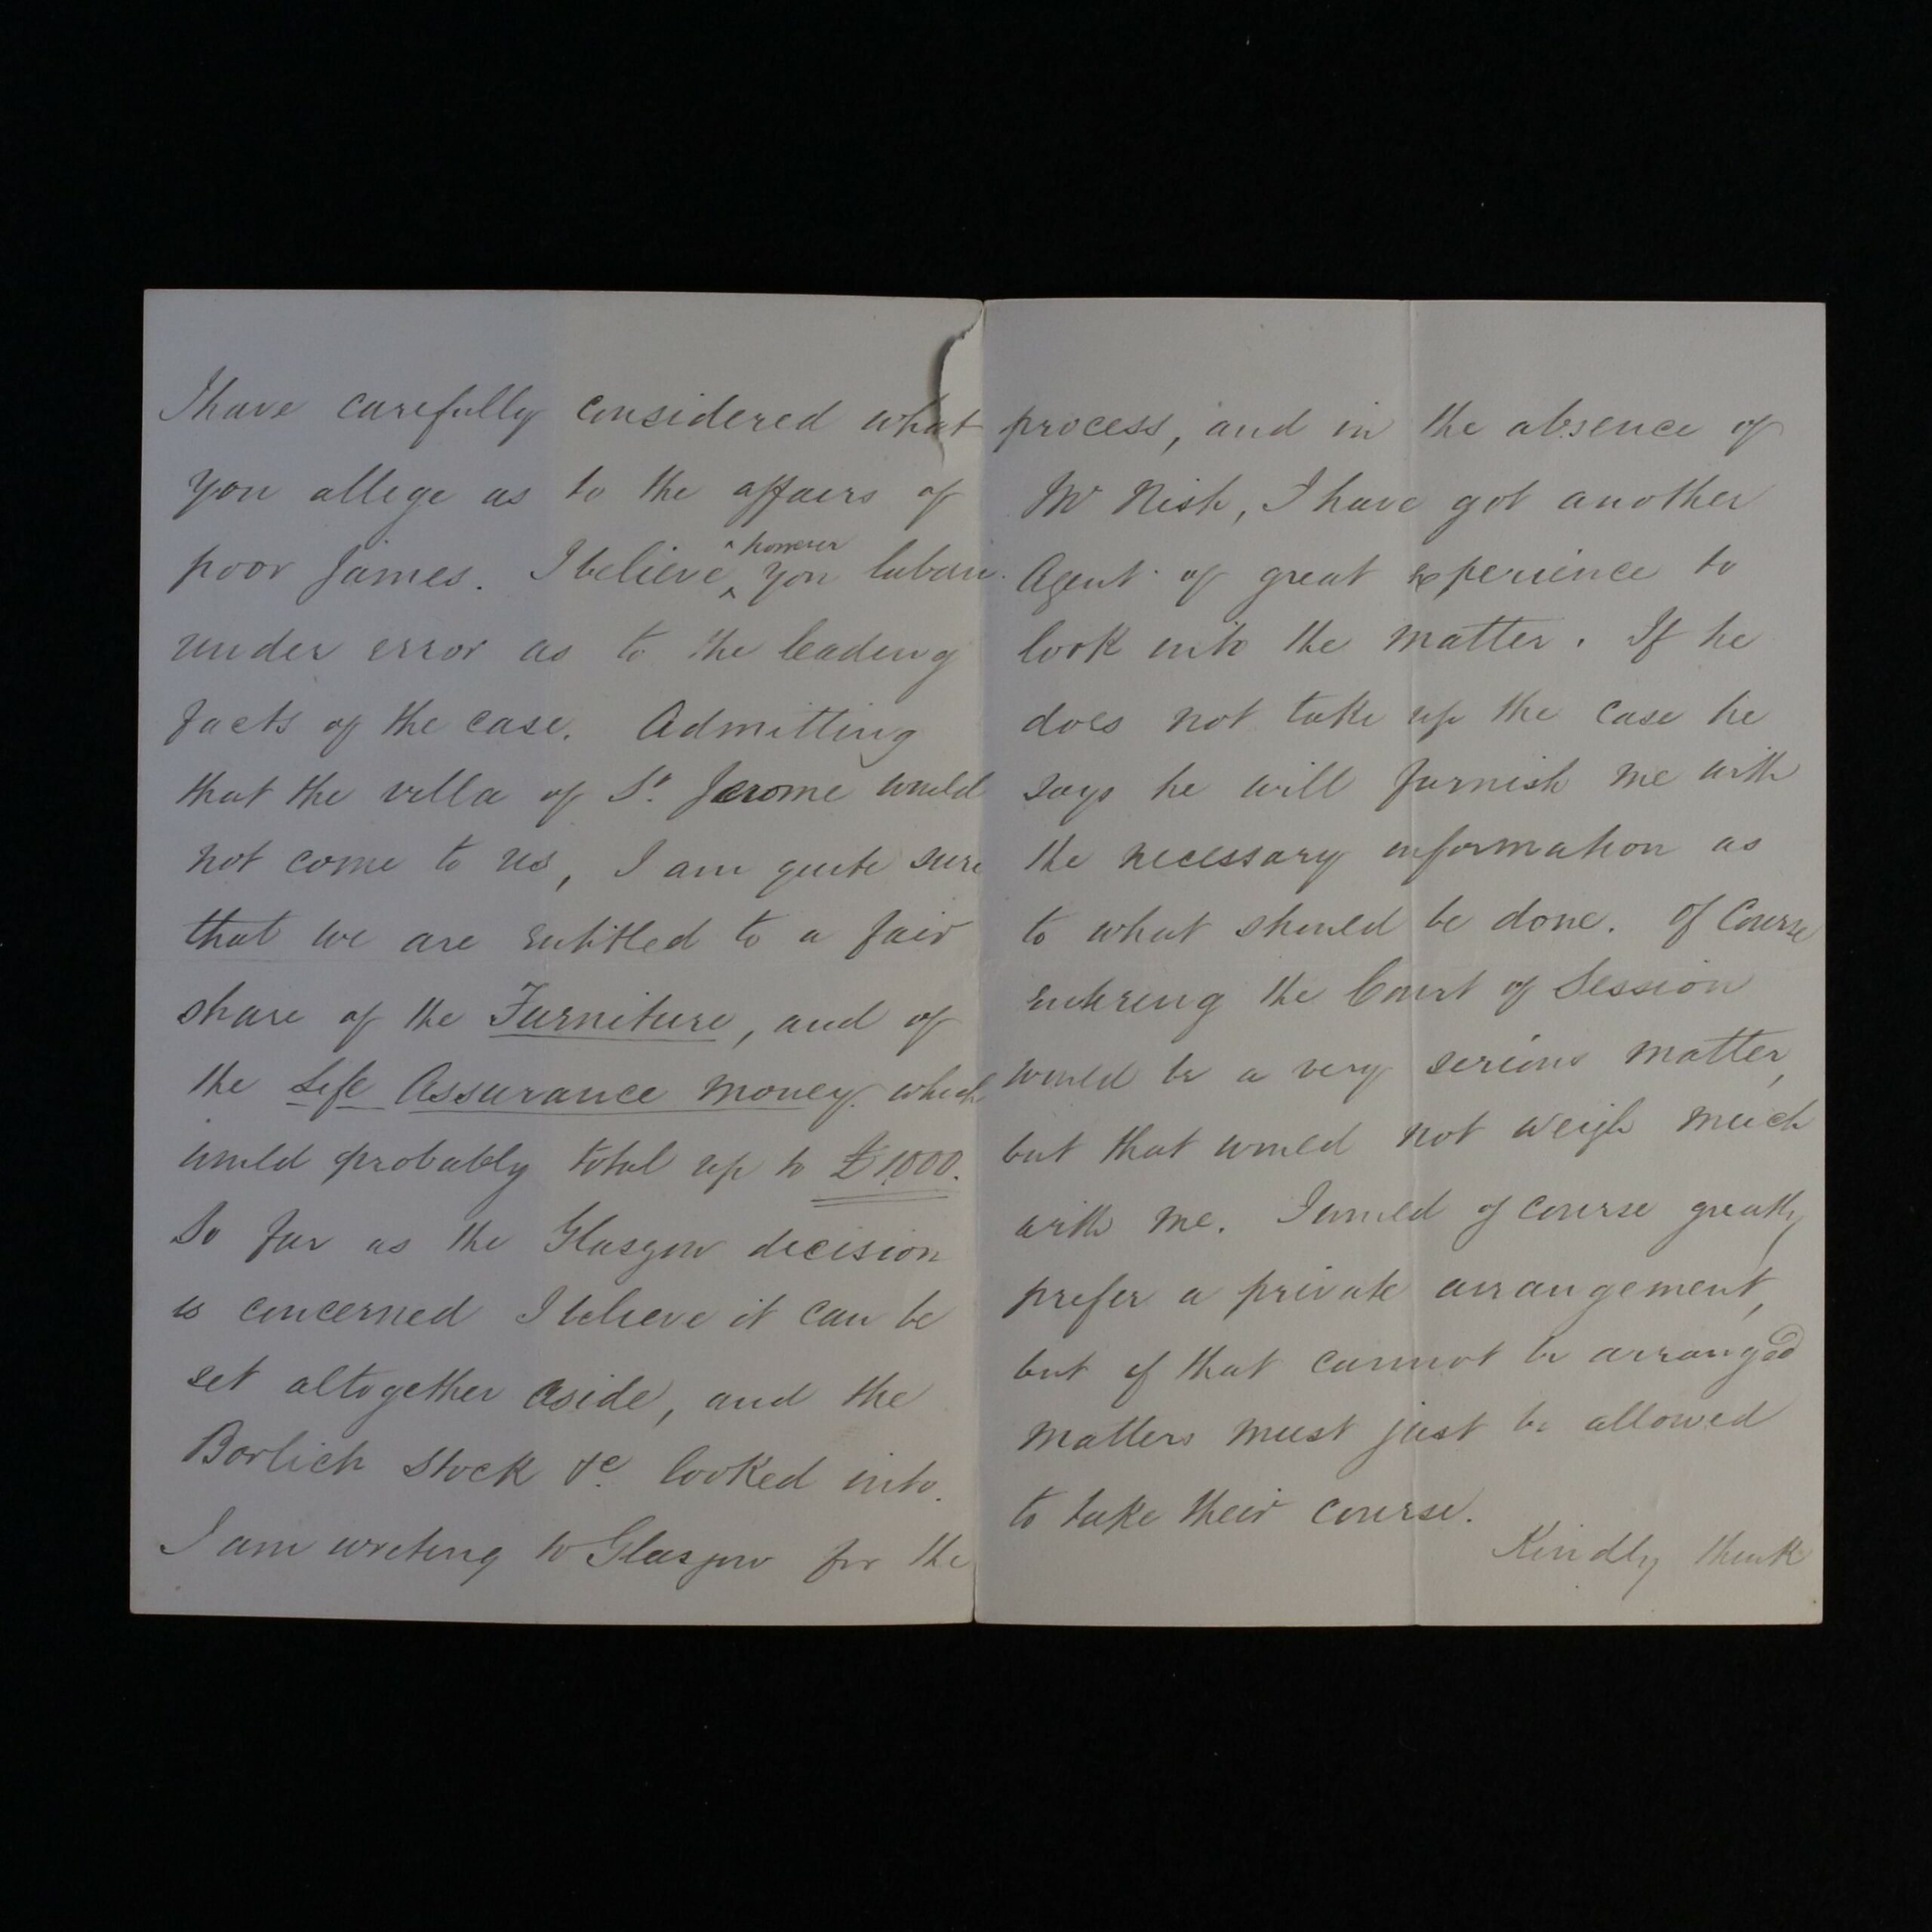 I have carefully considered what
you allege as to the affairs of
poor James. I believe, however you labour
under error as to the leading
facts of the case. Admitting
that the villa of St. Jerome would
not come to us, I am quite sure
that we are entitled to a fair
share of the Furniture, and of
the Life Assurance money which
would probably total up to £1,000.
So far as the Glasgow decision
is concerned I believe it can be
set altogether aside, and the
Borlich Stock &c. looked into.
I am writing to Glasgow for the
process, and in the absence of
Mr Nish, I have got another
Agent of great experience to
look into the matter. If he
does not take up the case he
says he will furnish me with
the necessary information as
to what should be done. Of Course
entering the Court of Session
would be a very serious matter,
but that would not weigh much
with me. I would of course greatly
prefer a private arrangement,
but if that cannot be arranged
matters must just be allowed
to take their course.
Kindly think